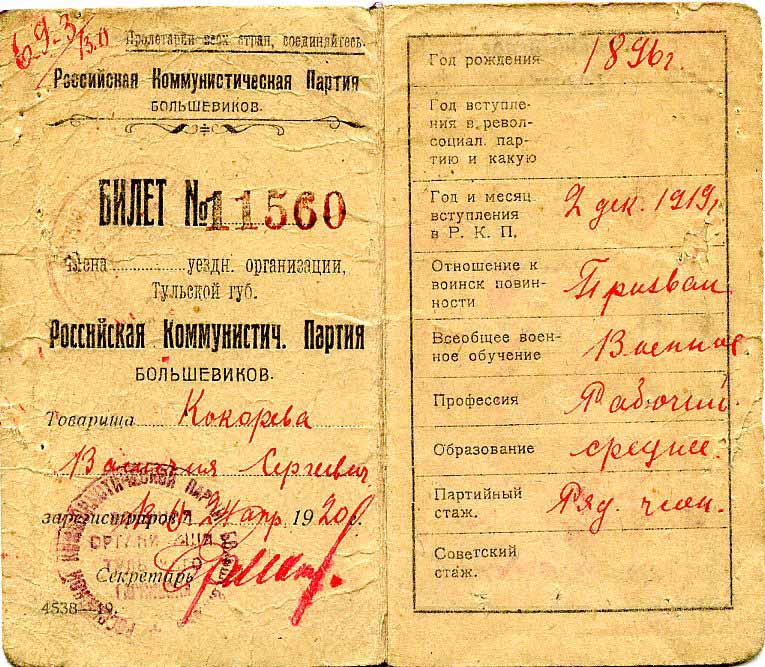 693/13.0
Пролетарии всех стран, соединяйтесь.
Российская Коммунистическая Партия
БОЛЬШЕВИКОВ.
БИЛЕТ № 11560
Члена уездн. организации,
Тульской губ.
Российская Коммунистич. Партия
БОЛЬШЕВИКОВ.
Товарища Кокорева
Василия Сергеевич
зарегистриров 24 апр 1920г.
Секретарь
4538—19.
Год рождения 1896г.
Год вступле-
ния в револ-
социал. пар-
тию и какую
Год и месяц
вступления
в Р. К. П. 2 дек. 1919г
Отношение к
воинск повин-
ности Призван
Всеобщее воен-
ное обучение Военное
Профессия Рабочий.
Образование среднее.
Партийный
стаж. Ряд. член.
Советский
стаж.